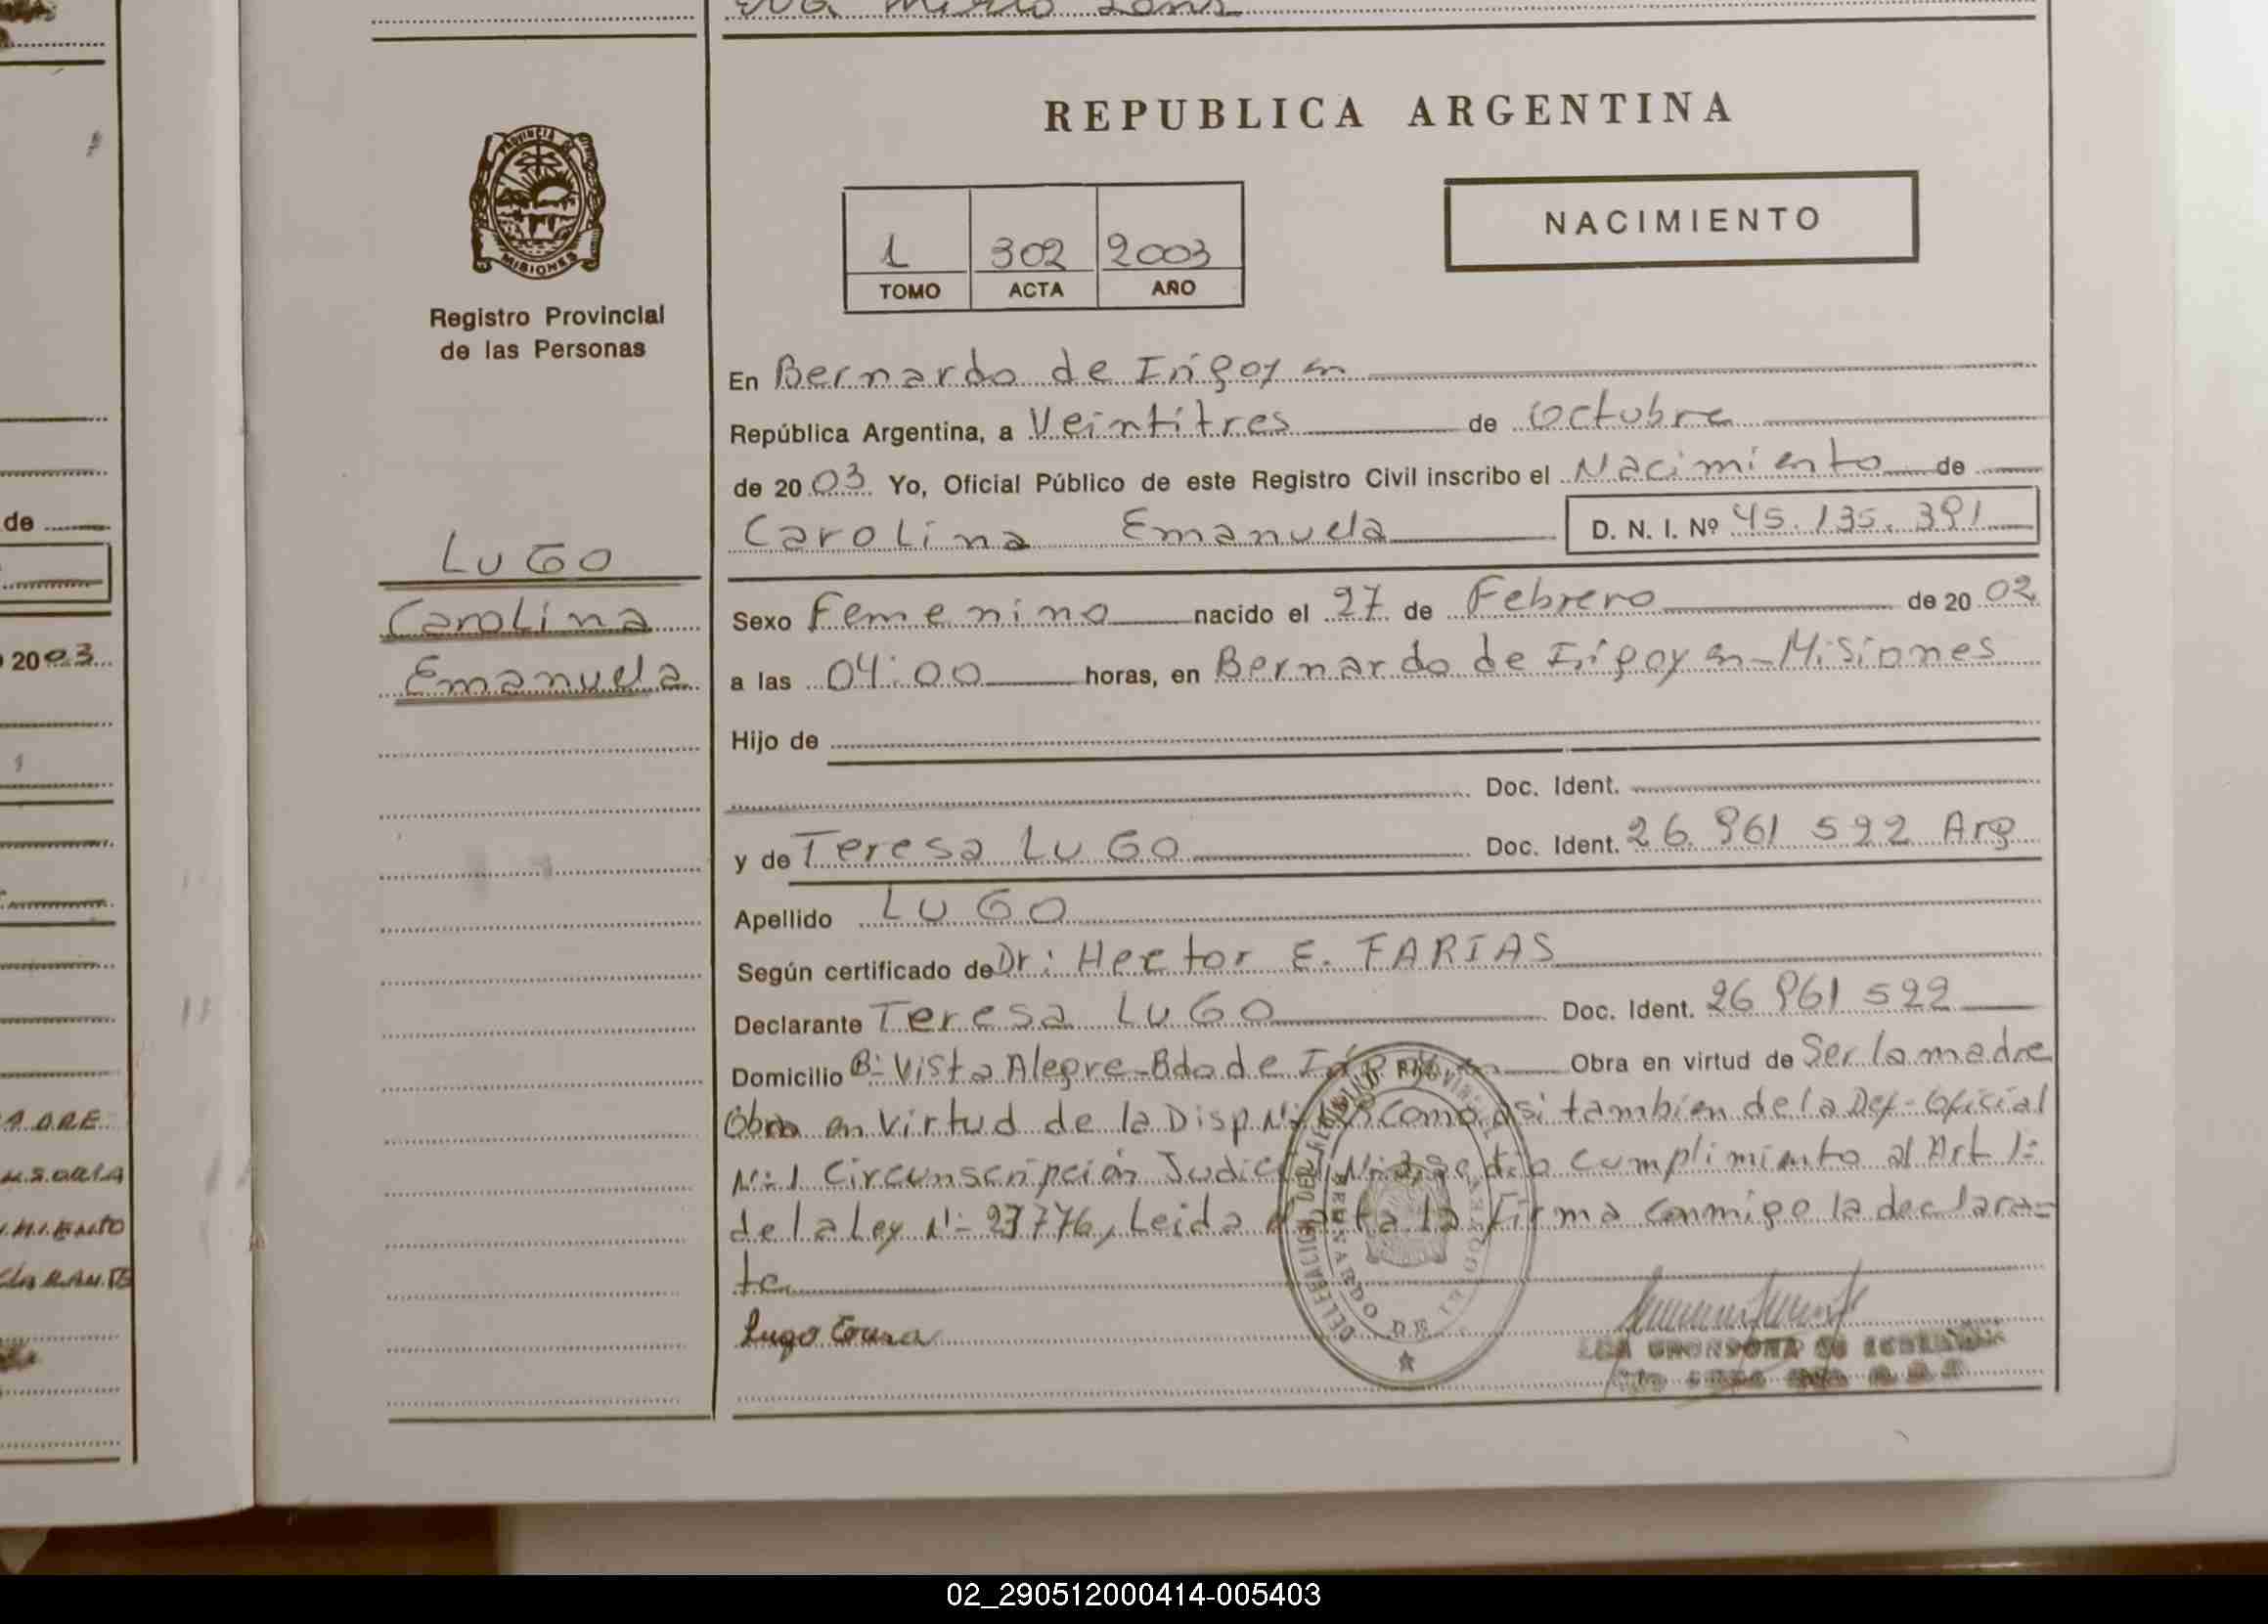 REPUBLICA ARGENTINA
PROVINCIA DE
MISIONES
Registro Provincial
de las Personas
1 302 2003
TOMO ACTA AÑO
NACIMIENTO
En Bernardo de Irigoyen
República Argentina, a Veintitres de Octubre
de 20 03 Yo, Oficial Público de este Registro Civil inscribo el Nacimiento de
Carolina Emanuela D. N. I. Nº 45.135.391
LUGO
Carolina
Emanuela
Sexo Femenino nacido el 27 de Febrero de 20 02
a las 04:00 horas, en Bernardo de Irigoyen-Misiones
Hijo de
Doc. Ident.
y de Teresa LUGO Doc. Ident. 26.961 522 Arg
Apellido LUGO
Según certificado de Dr: Hector E. FARIAS
Declarante Teresa LUGO Doc. Ident. 26 961 522
Domicilio Bº Vista Alegre-Bdo de Irigoyen Obra en virtud de Ser la madre
Obra en Virtud de la Disp como asi tambien de la Def-Oficial
Nº 1 Circunscripción Judicial cumplimiento al Art 1º
de la Ley Nº 23776, Leida la Firma conmigo la declaran=
te
Lugo
DELEGACION DEL REGISTRO PROVINCIAL
BERNARDO DE IRIGOYEN
de
2003
02_290512000414-005403